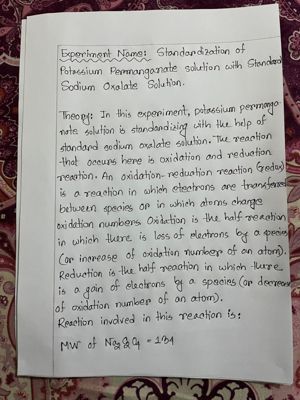 Experiment Name: Standardization of
Potassium Permanganate solution with Standard
Sodium Oxalate Solution.
Theory: In this experiment, potassium permanga-
nate solution is standardizing with the help of
standard sodium oxalate solution. The reaction
that occurs here is oxidation and reduction
reaction. An oxidation-reduation reaction (redox)
is a reaction in which electrons are transferred
between species or in which atoms change
oxidation numbers. Oxidation is the half reaction
in which there is loss of electrons by a species
(or increase of oxidation number of an atom).
Reduction is the half reaction in which there
is a gain of electrons by a species (or decrease
of oxidation number of an atom).
Reaction involved in this reaction is:
MW of Na2C2O4 = 134